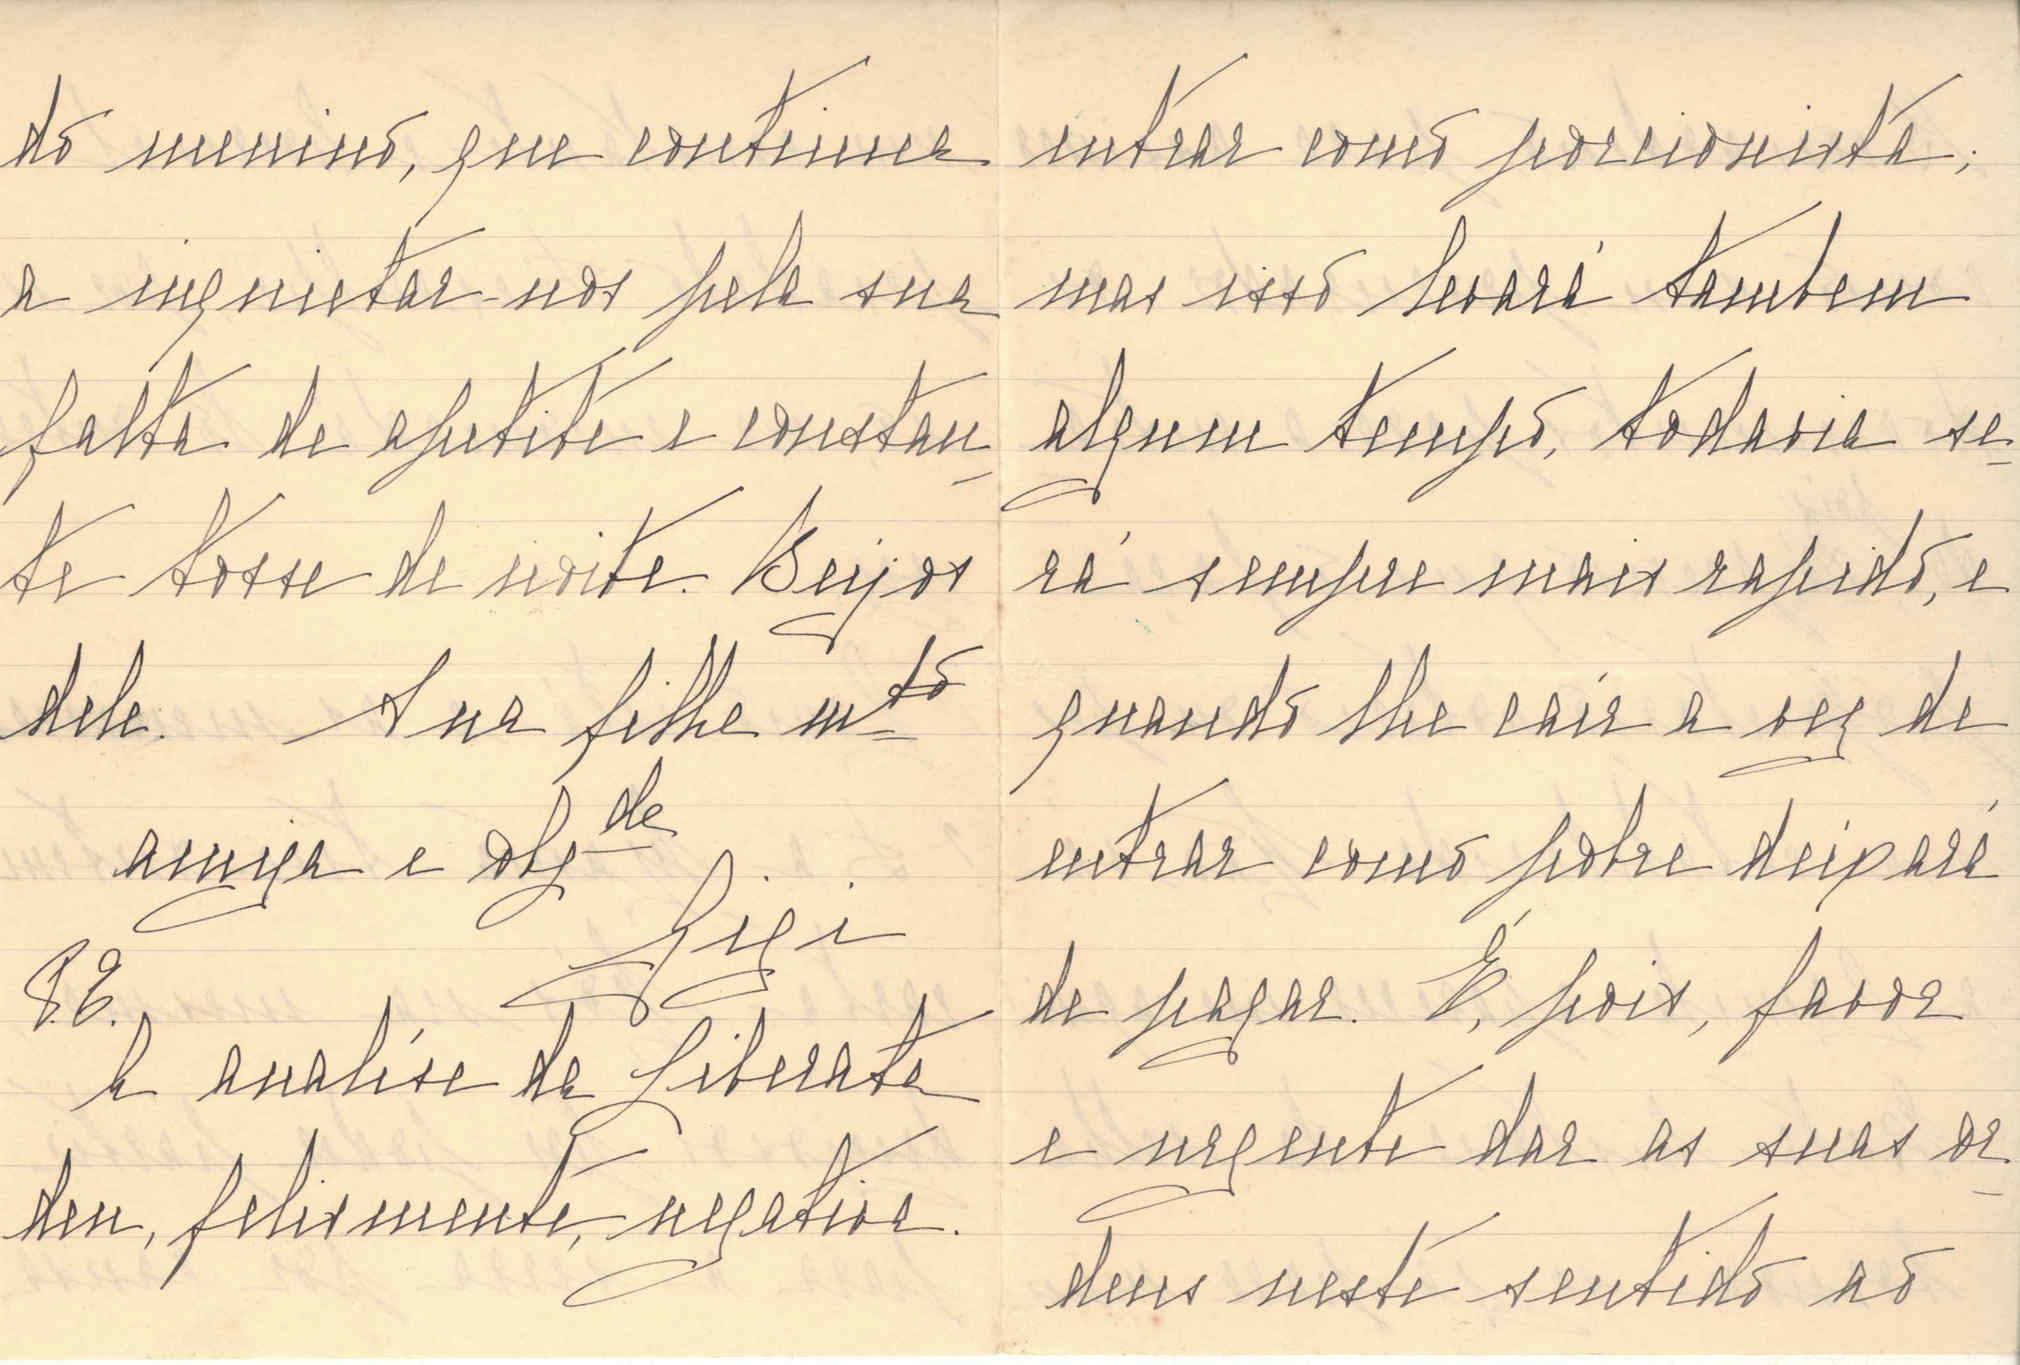 do menino, que continua
a inquietar-nos pela sua
falta de apetite e constan-
te tosse de noite. Beijos
dele. Sua filha mto
amiga e obgda
Gigi
P.S.
A analise da Liberata
deu, felismente, negativa.
entrar como porcionista;
mas isso levará tambem
algum tempo, todavia se-
rá sempre mais rapido, e
quando lhe cair a vez de
entrar como pobre deixará
de pagar. É, pois, favor
e urgente dar as suas or-
dens neste sentido ao